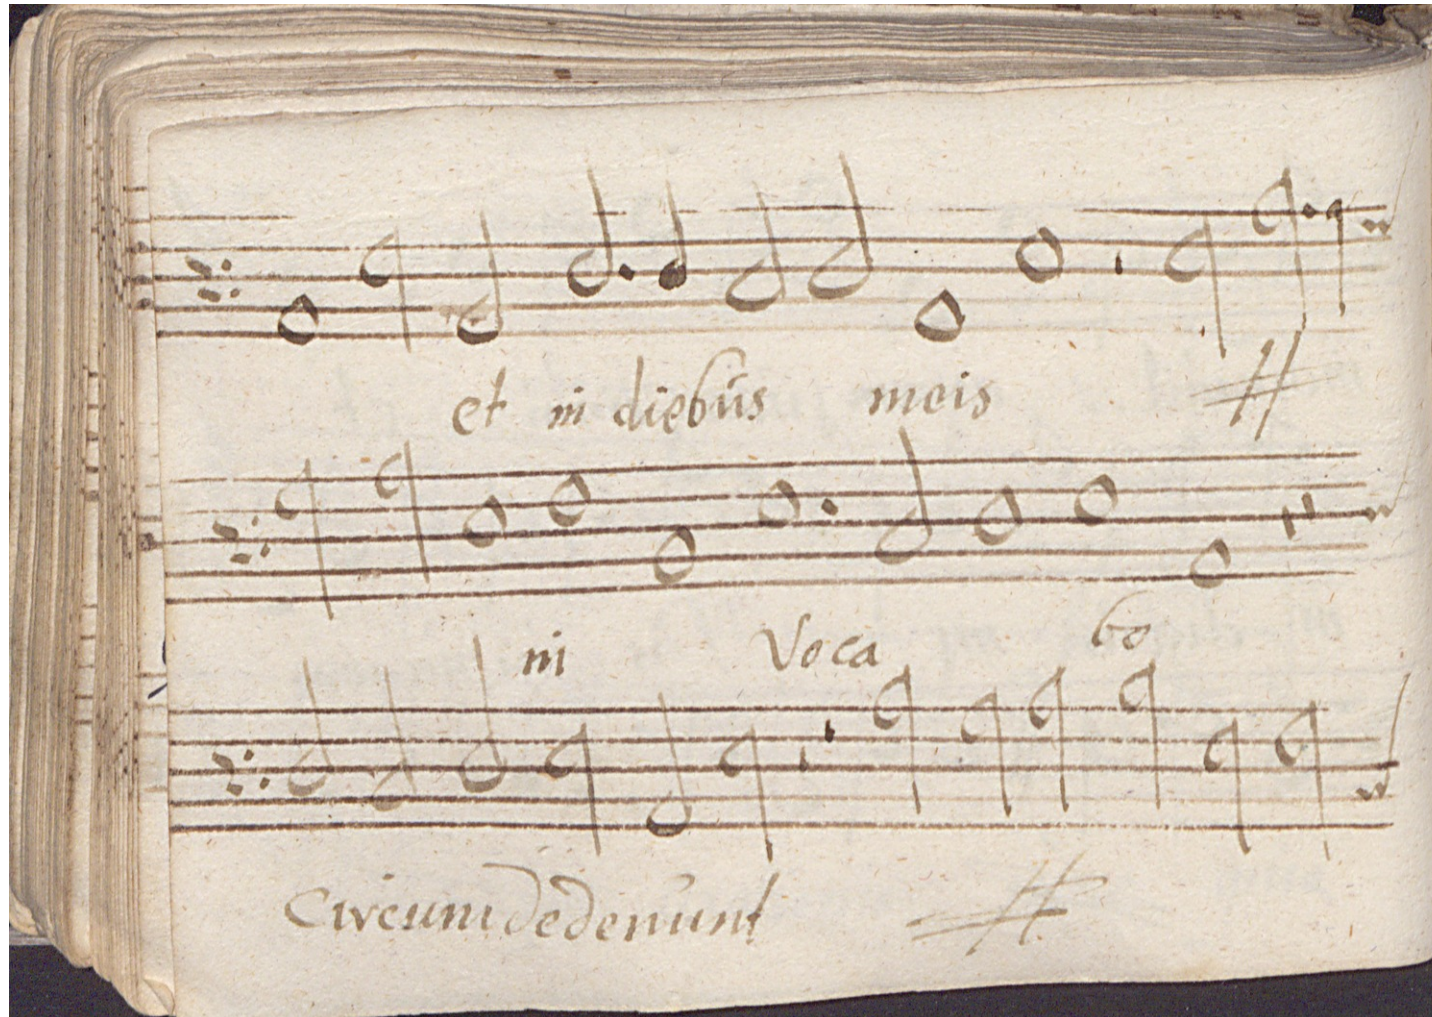 et in diebus meis
in Voca bo
Circumdederunt